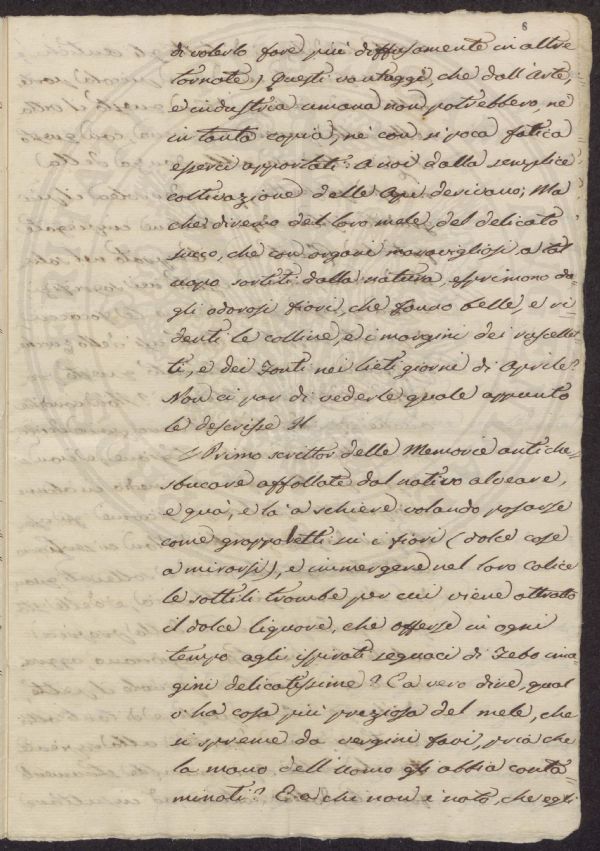 8
di volerlo fare più diffusamente in altre
tornate) Questi vantaggi, che dall'Arte,
e industria umana non potrebbero, nè
in tanta copia, nè con sì poca fatica
esserci apportati: a noi dalla semplice
coltivazione delle Api derivano; Ma
che diremo del loro mele, del delicato
succo, che con organi maravigliosi, a tal
uopo sortiti dalla natura, esprimono da
gli odorosi fiori, che fanno belle, e ri
denti le colline, e i margini dei ruscellet
ti, e dei Fonti nei lieti giorni di Aprile?
Non ci par di vederle quale appunto
le descrisse Il
Primo scrittor delle Memorie antiche
sbucare affollate dal nativo alveare,
e quà, e là a schiere volando posarse
come grappoletti su i fiori (dolce cose
a mirarsi), e immergere nel loro calice
le sottili trombe per cui viene attratto
il dolce liquore, che offerse in ogni
tempo agli ispirati seguaci di Febo ima
gini delicatissime? E a vero dire, qual
v'ha cosa più preziosa del mele, che
si spreme da vergini favi, pria che
la mano dell'uomo gli abbia conta=
minati? E a chi non è noto, che egli